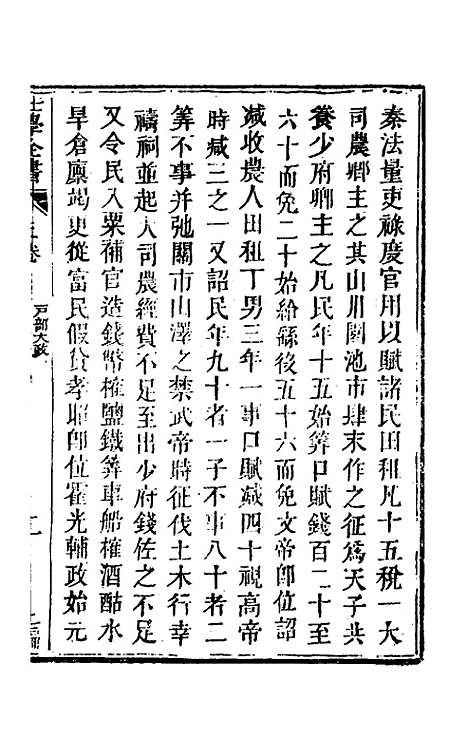 秦法量吏祿慶官用以賦諸民田租凡十五稅一大
司農卿主之其山川園池市肆末作之征爲天子共
養少府卿主之凡民年十五始筭口賦錢百二十至
六十而免二十始給繇後五十六而免文帝卽位詔
減收農人田租丁男三年一事口賦減四十視高帝
時減三之一又詔民年九十者一子不事八十者二
筭不事并弛關市山澤之禁武帝時征伐土木行幸
禱祠並起大司農經費不足至出少府錢佐之不足
又令民入粟補官造錢幣榷鹽鐵筭車船榷酒酤水
旱倉廩竭更從富民假貸孝昭卽位霍光輔政始元
學全書
卷
戸部大政